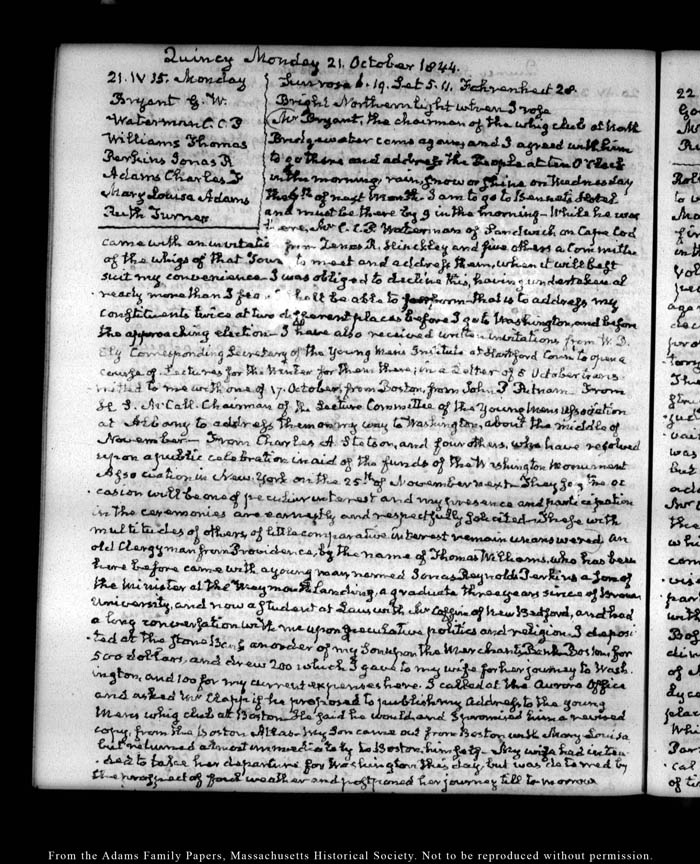 Quincy Monday 21. October 1844.
21. IV 15. Monday
Bryant G. W.
Waterman C. C. P
Williams Thomas
Perkins Jonas R
Adams Charles F
Mary Louisa Adams
Ruth Turner
Sun rose 6. 19. Set 5. 11. Fahrenheit 28.
Bright Northern light when I rose
Mr Bryant, the chairman of the whig club at North
Bridgewater came again, and I agreed with him
to go there and address the People at ten O'Clock
in the morning, rain, snow or shine on Wednesday
the 6th of next Month. I am to go to Hotel
and must be there by 9 in the morning — While he was
here, Mr C. C. P. Waterman of Sandwich on Cape Cod
came with an invitation from R. Hinckley and five others a Committee
of the whigs of that Town to meet and address them, when it will best
suit my convenience. I was obliged to decline this, having undertaken al
ready more than I fear I shall be able to perform — that is to address my
Constituents twice at two different places before I go to Washington, and before
the approaching election — I have also received written invitations from W. D.
Ely Corresponding Secretary of the Young Mens Institute at Hartford Conn to open a
course of Lectures for the Winter for them there; in a Letter of 5 October trans-
mitted to me with one of 17. October, from Boston, from John P. Putnam. From
J. McCall. Chairman of the Lecture Committee of the Young Mens Association
at Albany to address them on my way to Washington, about the middle of
November — From Charles A. Stetson, and four others, who have resolved
upon a public celebration in aid of the funds of the Washington Monument
Association in New York on the 25th of November next. They say the oc
casion will be one of peculiar interest and my presence and participation
in the ceremonies are earnestly and respectfully solicited. These with
multitudes of others, of little comparative interest remain unanswered. An
old Clergyman from Providence, by the name of Thomas Williams, who has been
here before came with a young man named Jonas Reynolds Perkins a son of
the Minister at the Weymouth Landing, a graduate three years since of Brown
University, and now a Student at Law with Mr Coffin of New Bedford, and had
a long conversation with me upon speculative politics and religion. I deposi
ted at the Stone Bank an order of my Son upon the Merchants Bank Boston, for
500 dollars, and drew 200 which I gave to my wife for her journey to Wash-
ington, and 100 for my current expenses here. I called at the Aurora Office
and asked Mr Clapp if he proposed to publish my Address to the young
Mens whig club at Boston. He said he would and I promised him a revised
copy, from the Boston Atlas. My Son came out from Boston with Mary Louisa
but returned almost immediately to Boston himself. My wife had inten-
ded to take her departure for Washington this day, but was deterred by
the prospect of foul weather and postponed her journey till to morrow
22
From the Adams Family Papers, Massachusetts Historical Society. Not to be reproduced without permission.